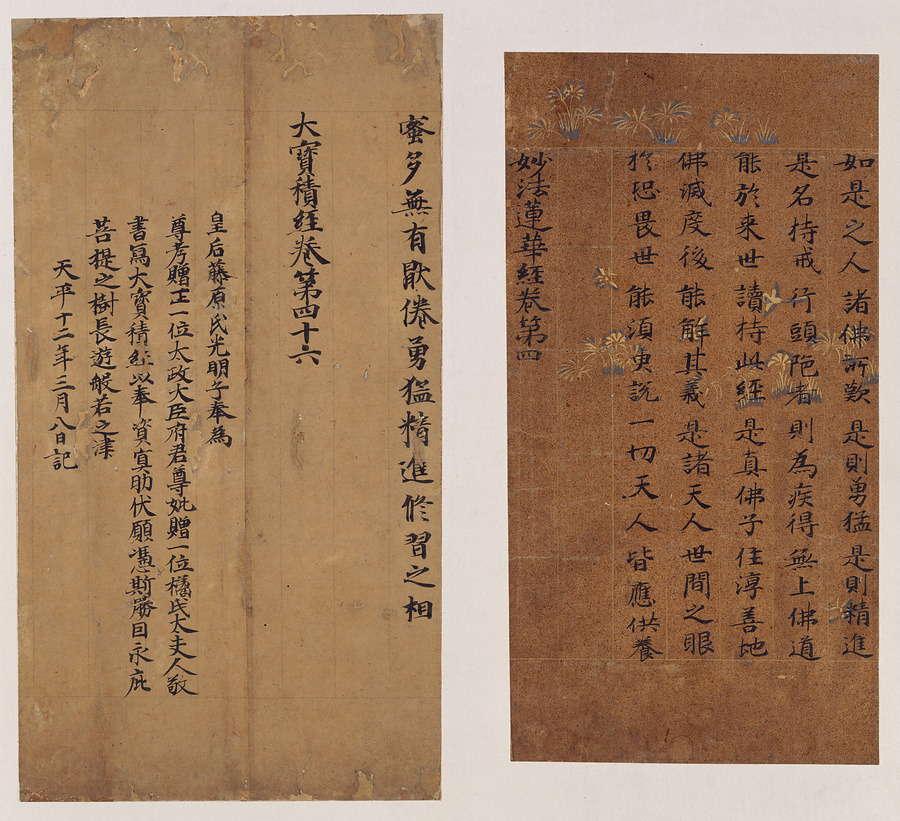 如是之人諸佛所歎是則勇猛是則精進
是名持戒行頭陁者則為疾得無上佛道
能於来世讀持此經是真佛子住淳善地
佛滅度後能解其義是諸天人世間之眼
於恐畏世能須臾說一切天人皆應供養
妙法蓮華經卷第四
蜜多無有猒倦勇猛精進修習之相
大寶積經卷第四十六
皇后藤原氏光明子奉為
尊考贈正一位太政大臣府君尊妣贈一位橘氏太夫人敬
書寫大寶積經以奉資冥助伏願憑斯勝因永庇
菩提之樹長遊般若之津
天平十二年三月八日記